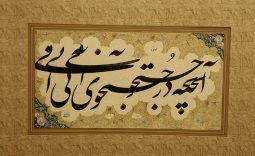 آنچه در جستجوی آنی آنی